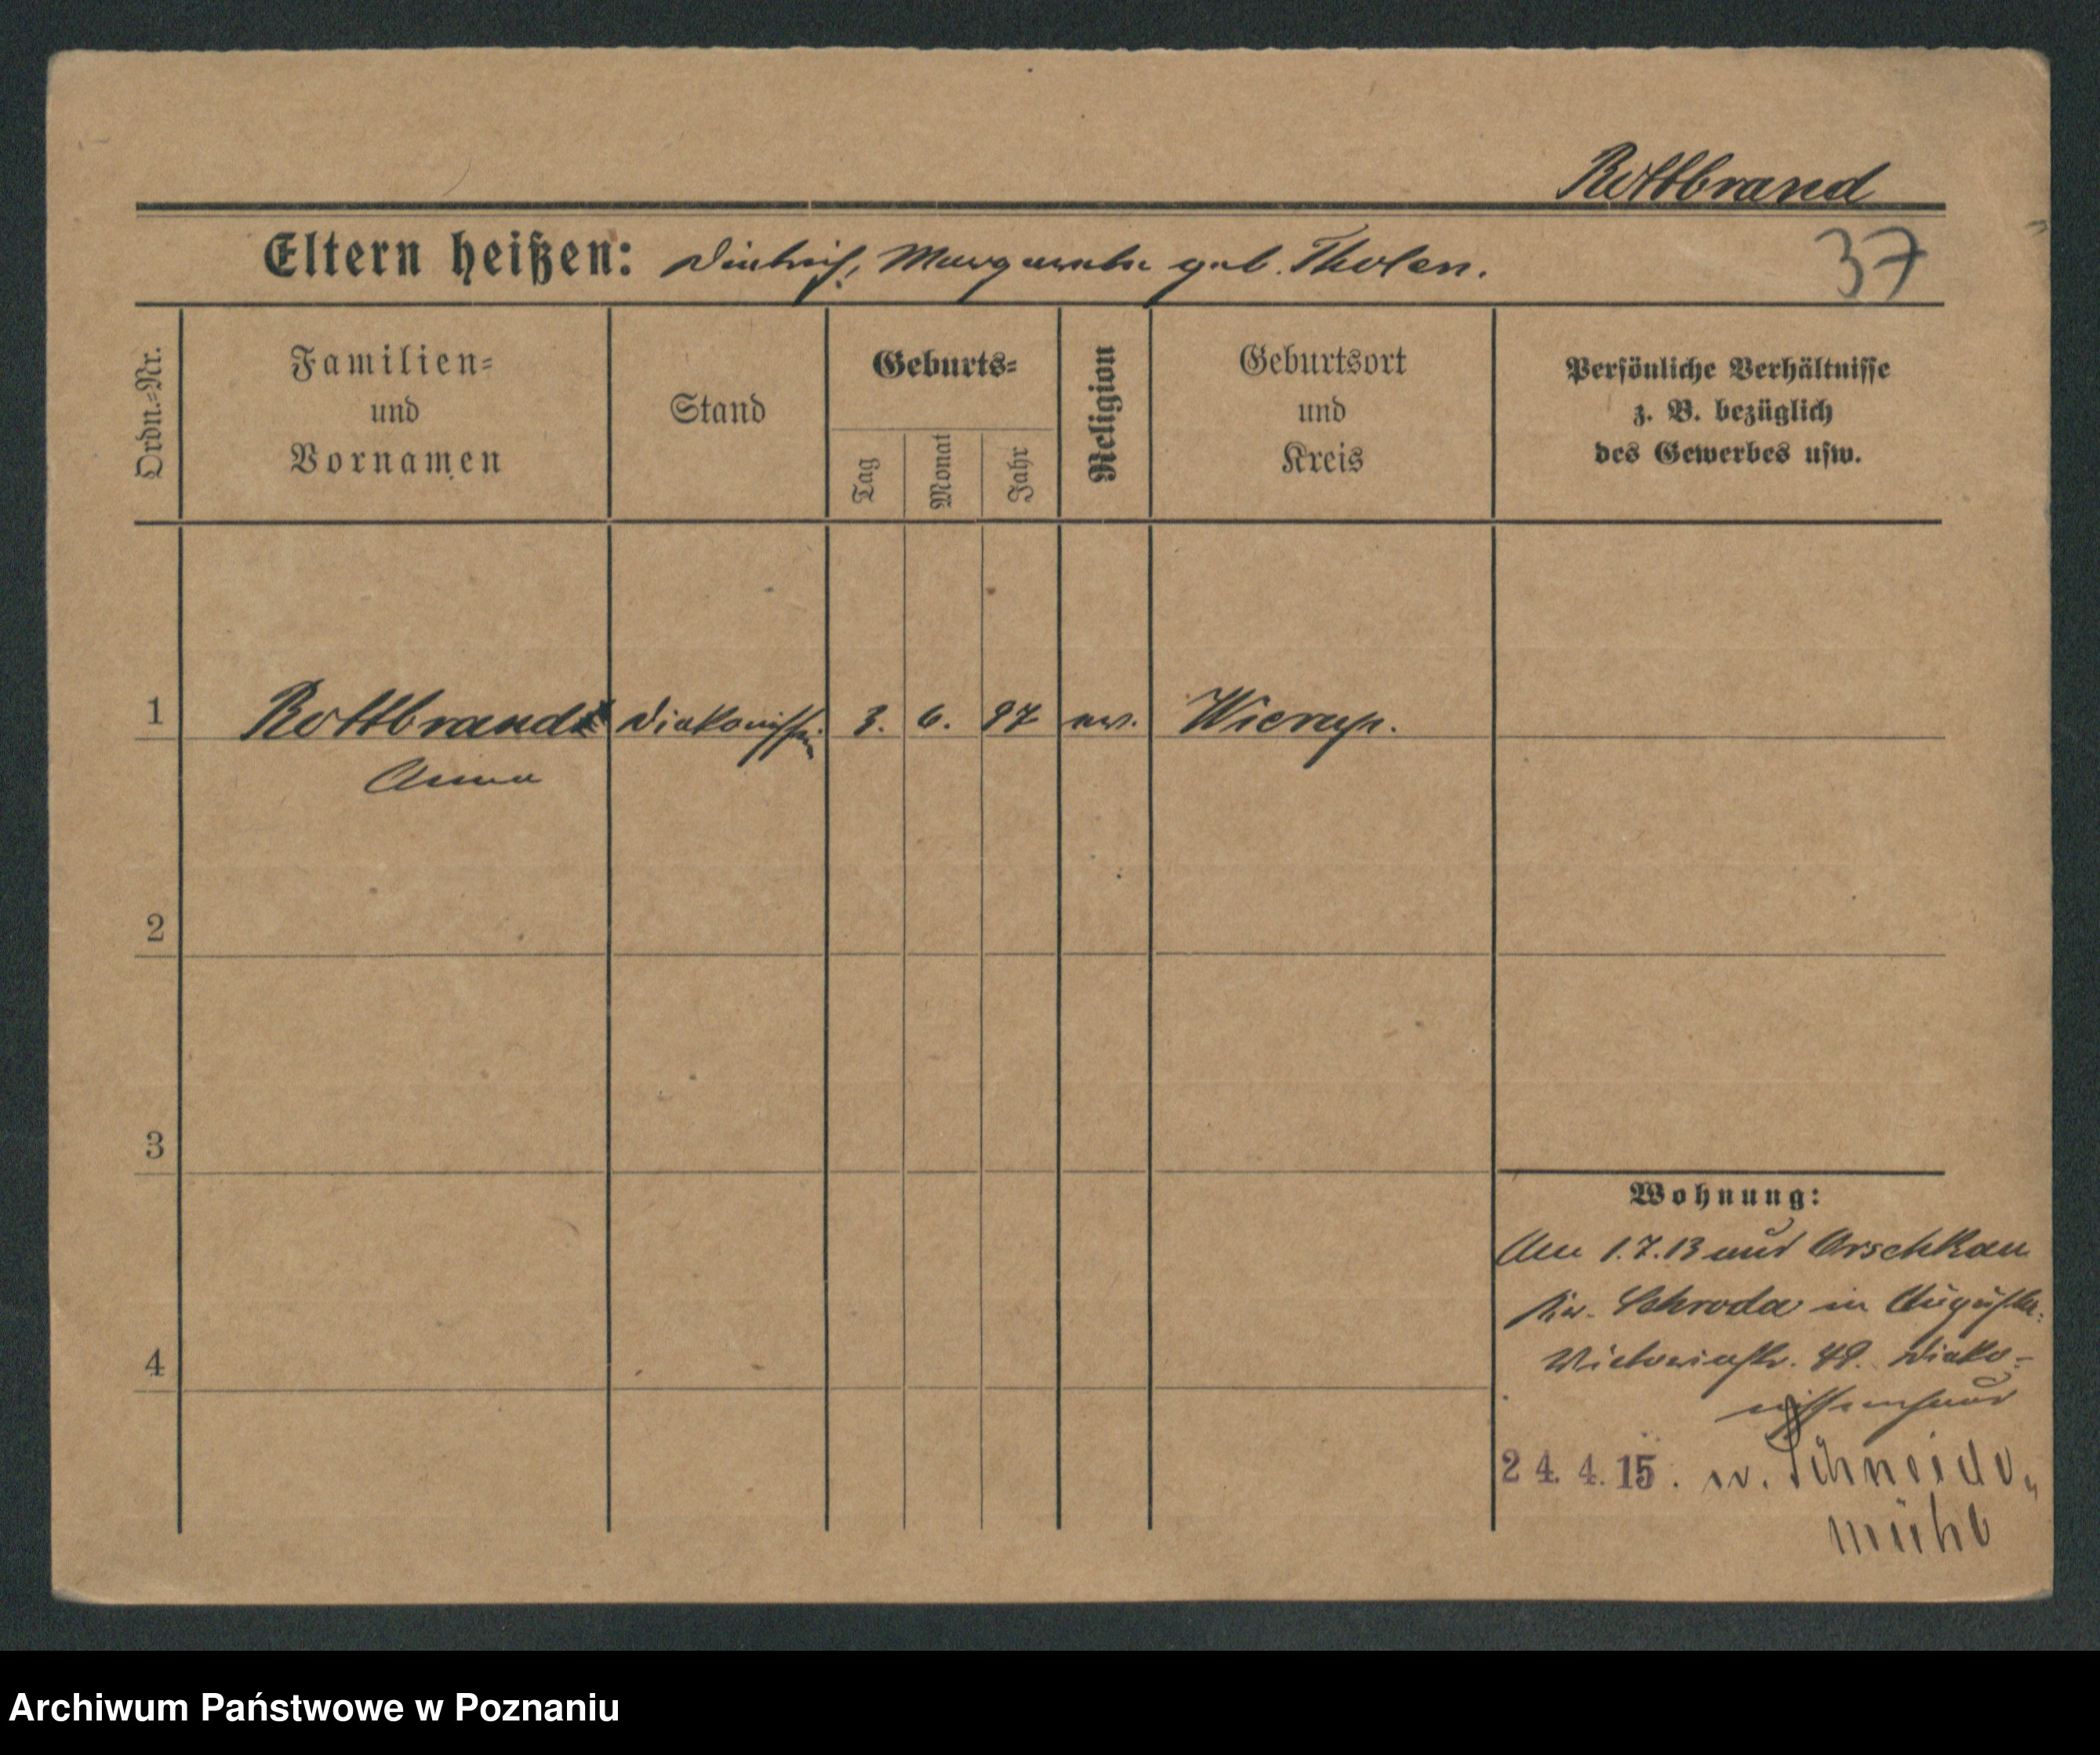 Rottbrand
Eltern heißen: Diedrich, Margarethe geb. Tholen.
37
Ordn.-Nr.
Familien-
und
Vornamen
Stand
Geburts-
Tag
Monat
Jahr
Religion
Geburtsort
und
Kreis
Persönliche Verhältnisse
z. B. bezüglich
des Gewerbes usw.
1 Rottbrand Diakonissin 3. 6. 87 ev.
Anna
2
3
4
Wohnung:
Am 1.7.13 aus
Kr. Schroda in Auguste-
Victoriastr. 49. Diako-
nissenhaus
24. 4. 15. n. Schneide-
mühl
Archiwum Państwowe w Poznaniu